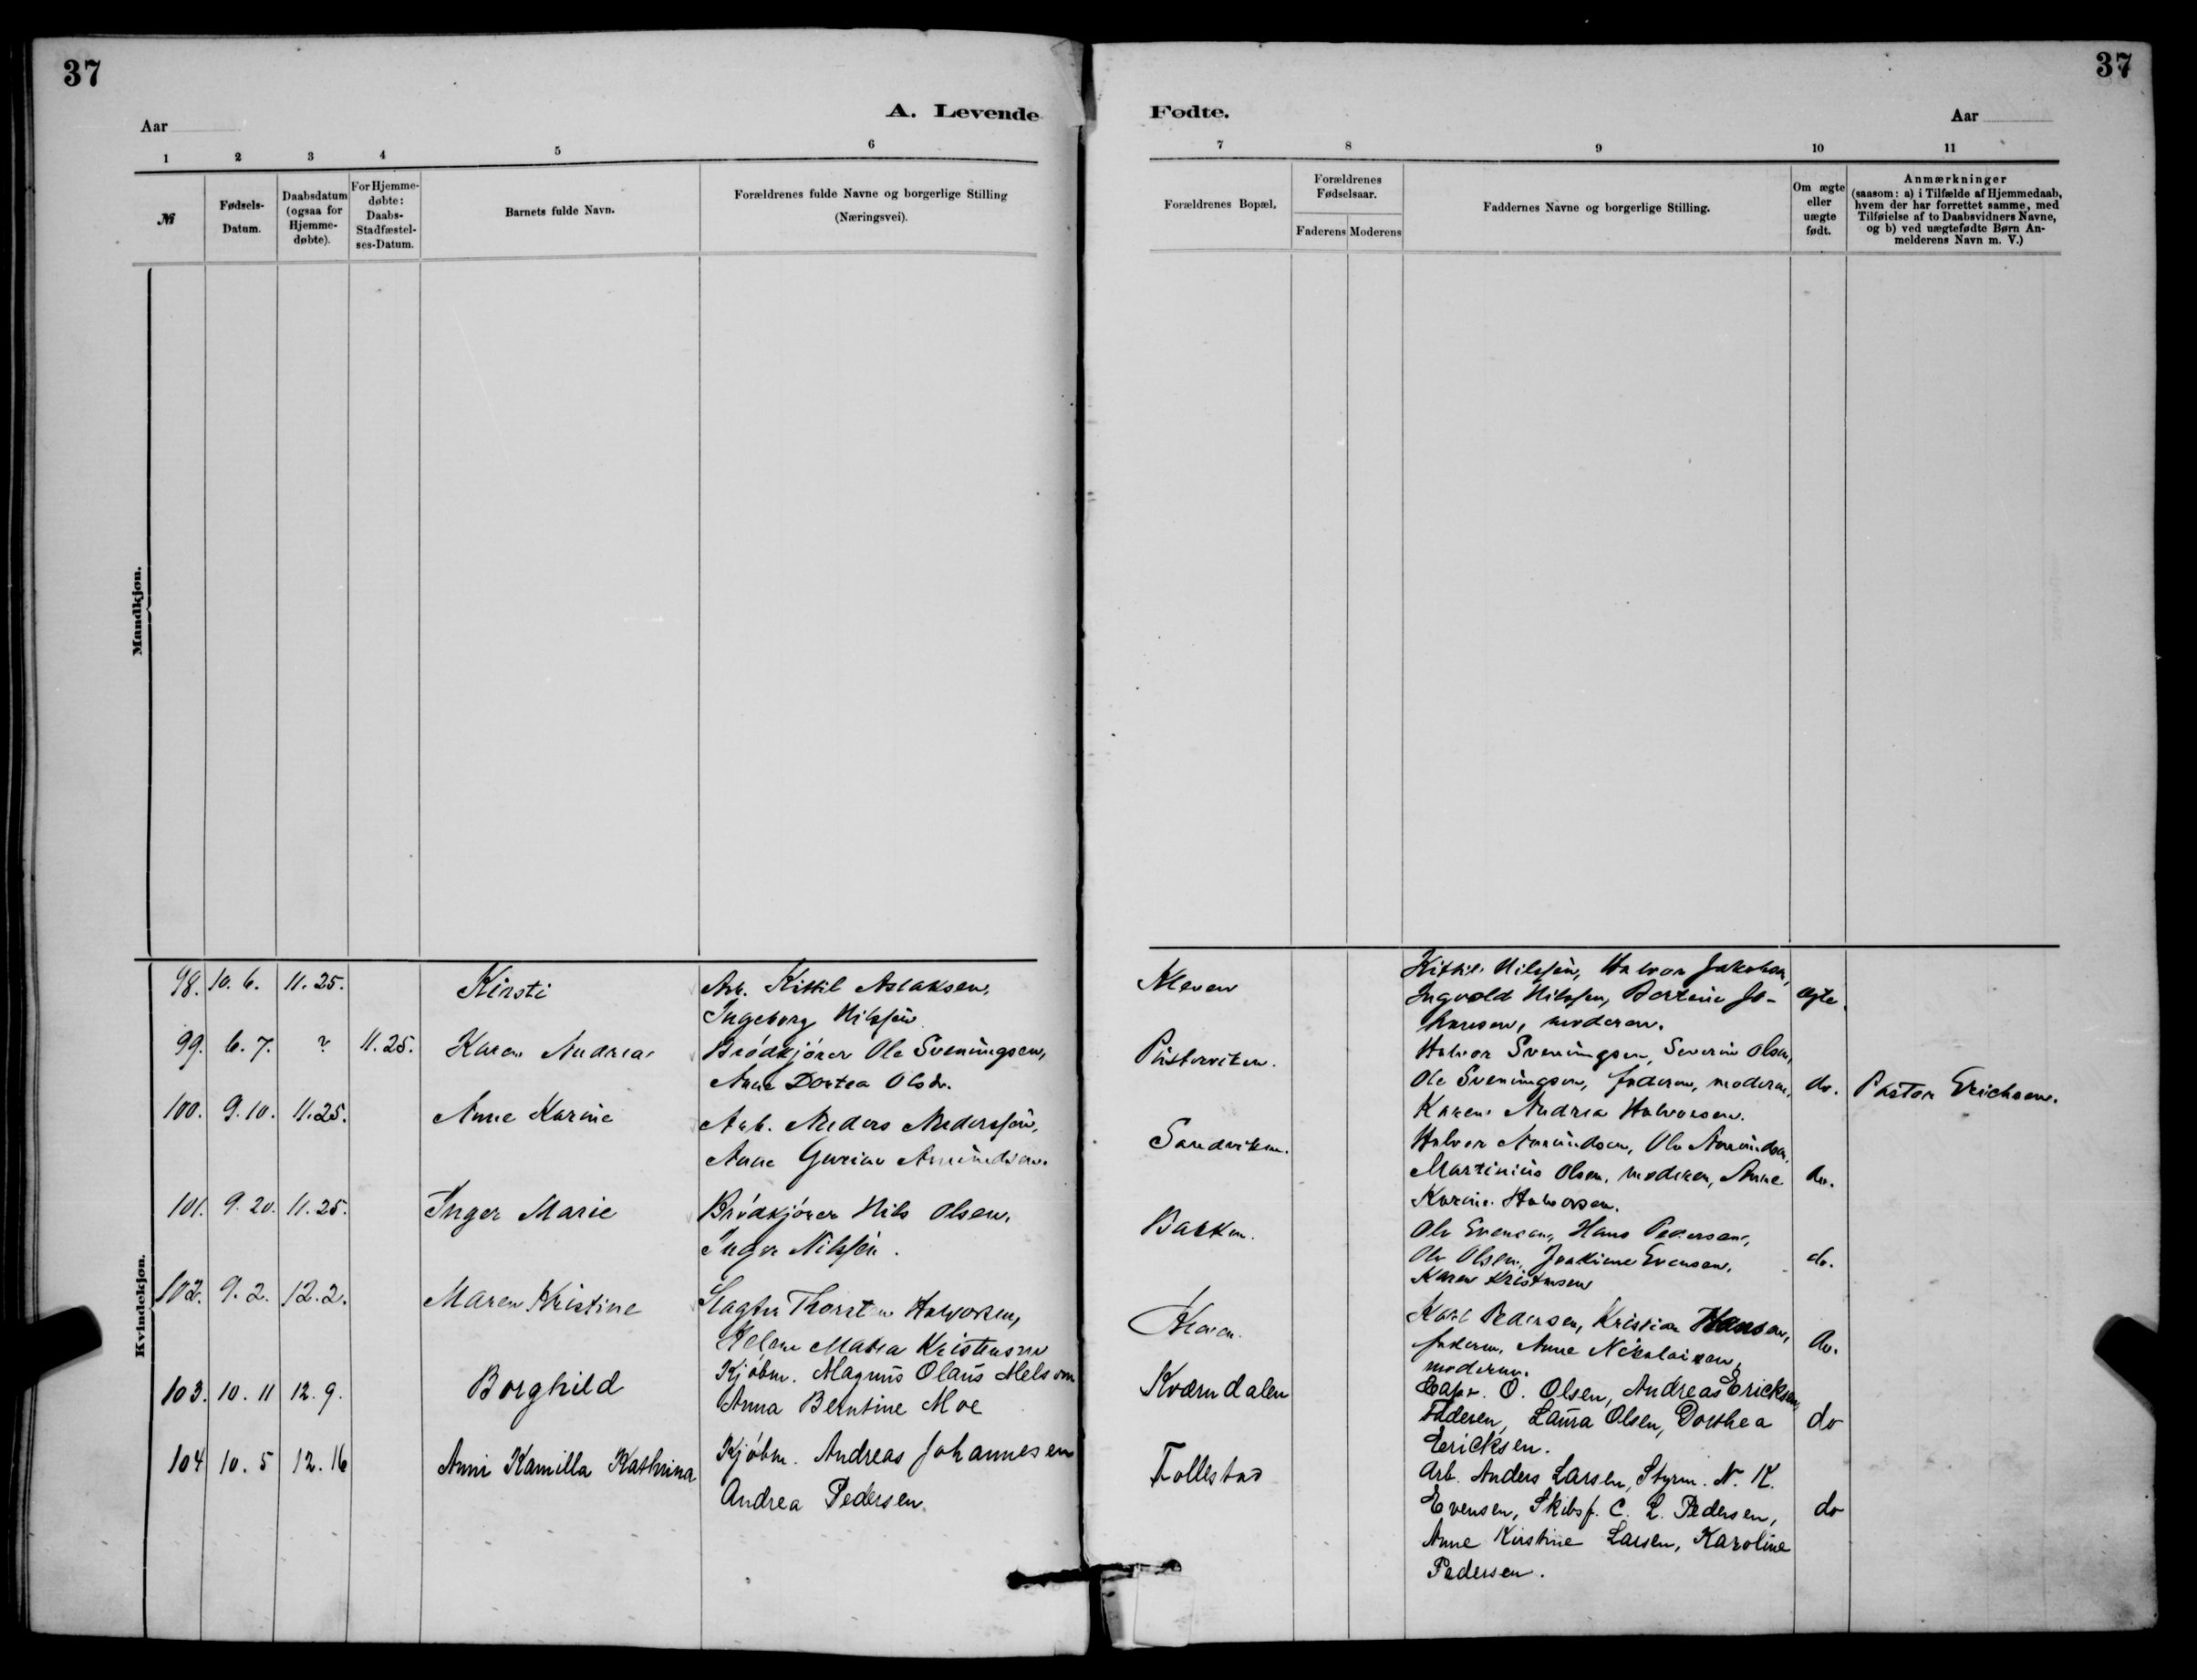 37
A. Levende
Aar
1 2 3 4 5 6
№
Fødsels-
Datum.
Daabsdatum
(ogsaa for
Hjemme-
døbte).
For Hjemme-
døbte:
Daabs-
Stadfæstel-
ses-Datum.
Barnets fulde Navn.
Forældrenes fulde Navne og borgerlige Stilling
(Næringsvei).
Mandkjøn.
Kvindekjøn.
98. 10. 6. 11. 25. Kirsti Arb. Kittil Aslaksen,
Ingeborg Nilssen
99. 6. 7. ? 11. 25. Karen Andrea Brødkjører Ole Sveningsen,
Anne Dortea Olsdr.
100. 9. 10. 11. 25. Anne Karine Arb. Anders Anderssen,
Anne Gurine Amundsen.
101. 9. 20. 11. 25. Inger Marie Brødkjører Nils Olsen,
Inger Nilssen.
102. 9. 2. 12. 2. Maren Kristine Slagter Thorsten Halvorsen,
Helene Maria Kristensen
103. 10. 11 12. 9. Borghild Kjøbm. Magnus Olaus Melsom
Anna Berntine Moe
104 10. 5 12. 16 Anni Kamilla Kathrina Kjøbm. Andreas Johannesen
Andrea Pedersen.
37
Fødte.
Aar
7 8 9 10 11
Forældrenes Bopæl.
Forældrenes
Fødselsaar.
Faderens Moderens
Faddernes Navne og borgerlige Stilling.
Om ægte
eller
uægte
født.
Anmærkninger
(saasom: a) i Tilfælde af Hjemmedaab,
hvem der har forrettet samme, med
Tilføielse af to Daabsvidners Navne,
og b) ved uægtefødte Børn An-
melderens Navn m. V.)
Kleven
Kittil Nilssen, Halvor Jakobsen,
Ingvald Nilssen, Bertine Jo- ægte.
hansen, moderen.
Halvor Sveningsen, Severin Olsen,
Ole Sveningsen, faderen, moderen, do. Pastor Erichsen.
Karen Andrea Halvorsen.
Sandviken.
Halvor Amundsen, Ole Amundsen,
Martinius Olsen, moderen, Anne do.
Karine Halvorsen.
Bakken.
Ole Evensen, Hans Pedersen,
Ole Olsen, Joakime Evensen, do.
Karen Kristensen
Kleven.
Karl Pedersen, Kristian Hansen,
faderen, Anne Nikolaisen, do.
moderen.
Kværndalen
Capt. O. Olsen, Andreas Ericksen,
Faderen, Laura Olsen, Dorthea do
Ericksen.
Follestad
Arb. Anders Larsen, Styrm. N. K.
Evensen, Skibsf. C. L. Pedersen, do
Anne Kirstine Larsen, Karoline
Pedersen.